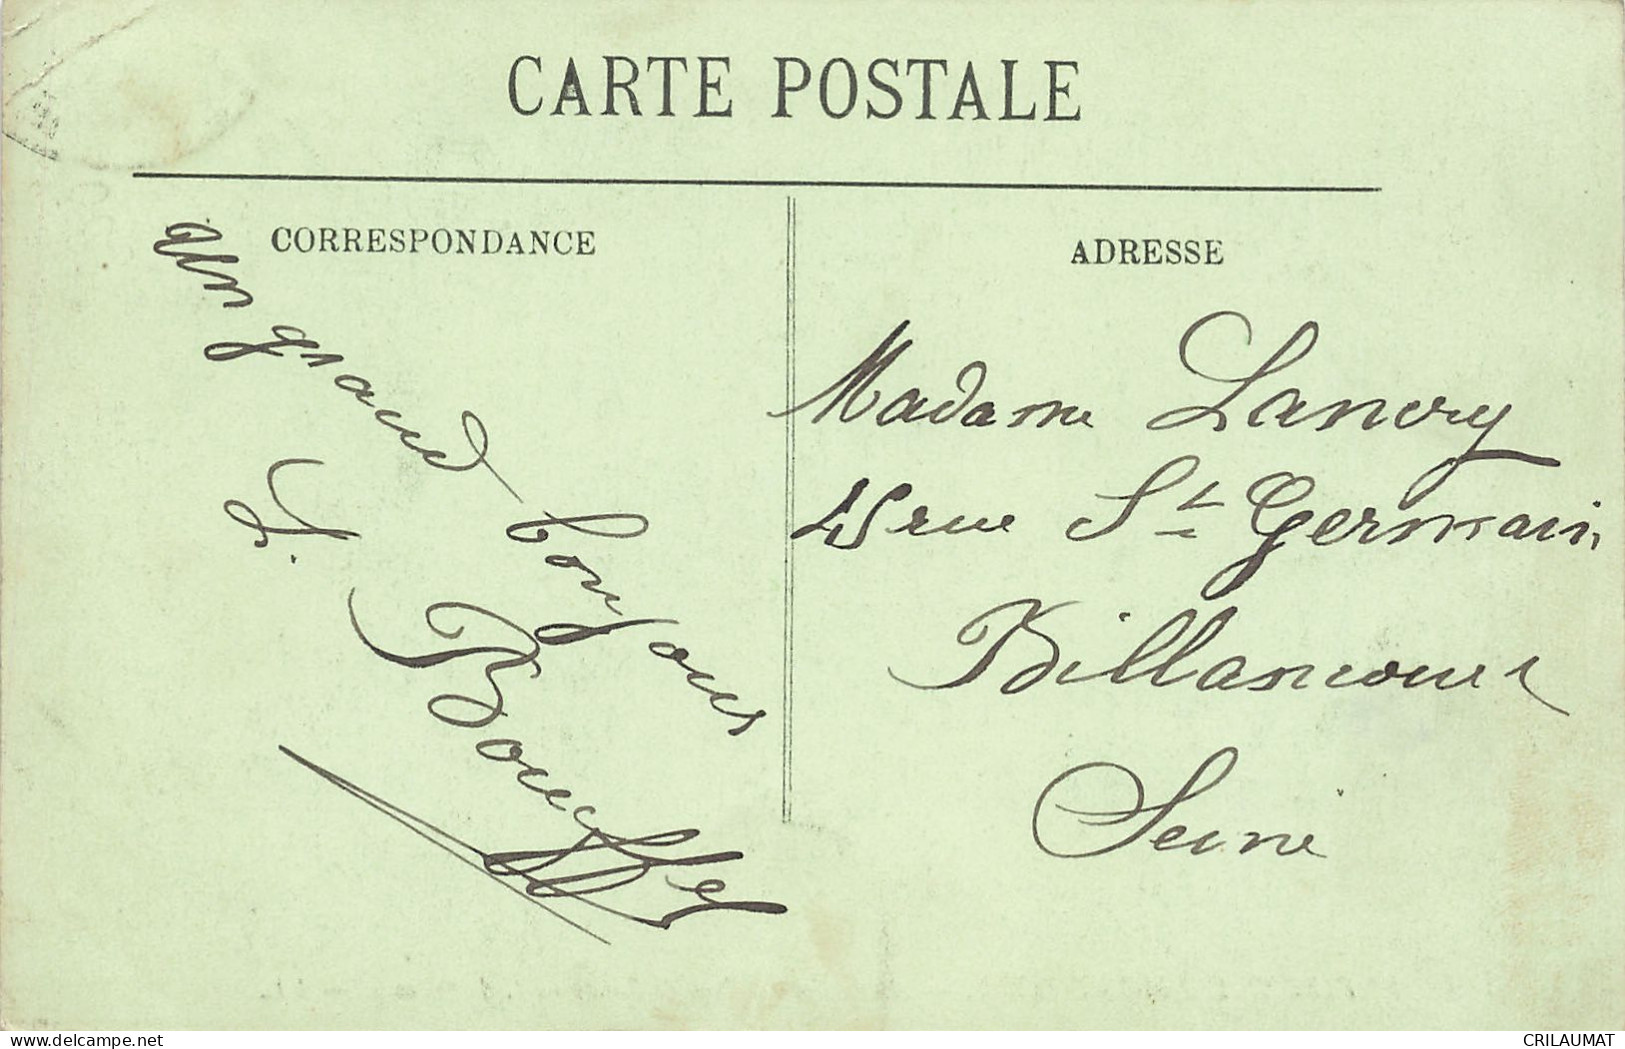 CARTE POSTALE
CORRESPONDANCE
ADRESSE
Un grand bonjour
Madame Lancry
45 rue St Germain
Billancourt
Seine
delcampe.net
CRILAUMAT